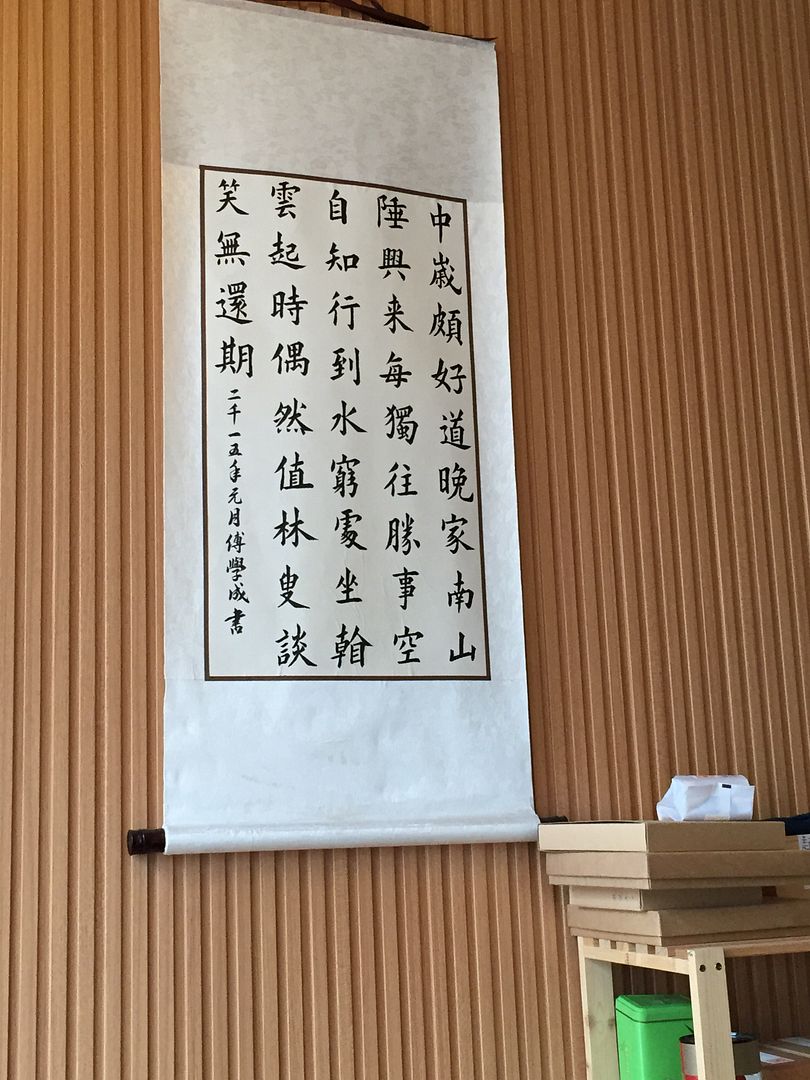 中歲頗好道晚家南山
陲興来每獨往勝事空
自知行到水窮處坐看
雲起時偶然值林叟談
笑無還期
二千一五年元月傅學成書